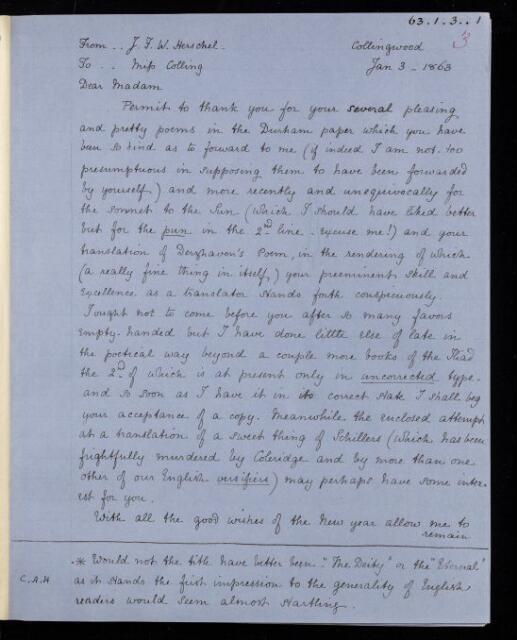 63.1.3..1
3
From .. J. F. W. Herschel. Collingwood
To .. Miss Colling Jan 3 - 1863
Dear Madam
Permit to thank you for your several pleasing
and pretty poems in the Durham paper which you have
been so kind as to forward to me (if indeed I am not too
presumptuous in supposing them to have been forwarded
by yourself) and more recently and unequivocally for
the sonnet to the Sun (which I should have liked better
but for the pun in the 2nd line - excuse me!) and your
translation of Derzhavon's Poem, in the rendering of which
(a really fine thing in itself,) your preeminent skill and
excellence as a translator stands forth conspicuously.
I ought not to come before you after so many favors
empty-handed but I have done little else of late in
the poetical way beyond a couple more books of the Iliad
the 2nd of which is at present only in uncorrected type.
and so soon as I have it in its correct state I shall beg
your acceptance of a copy. Meanwhile the enclosed attempt
at a translation of a sweet thing of Schillers (which has been
frightfully murdered by Coleridge and by more than one
other of our English versifiers) may perhaps have some inter-
est for you.
With all the good wishes of the New year allow me to
remain
* Would not the title have better been "The Deity" or the "Eternal"
C.A.H as it stands the first impression to the generality of English
readers would seem almost startling.